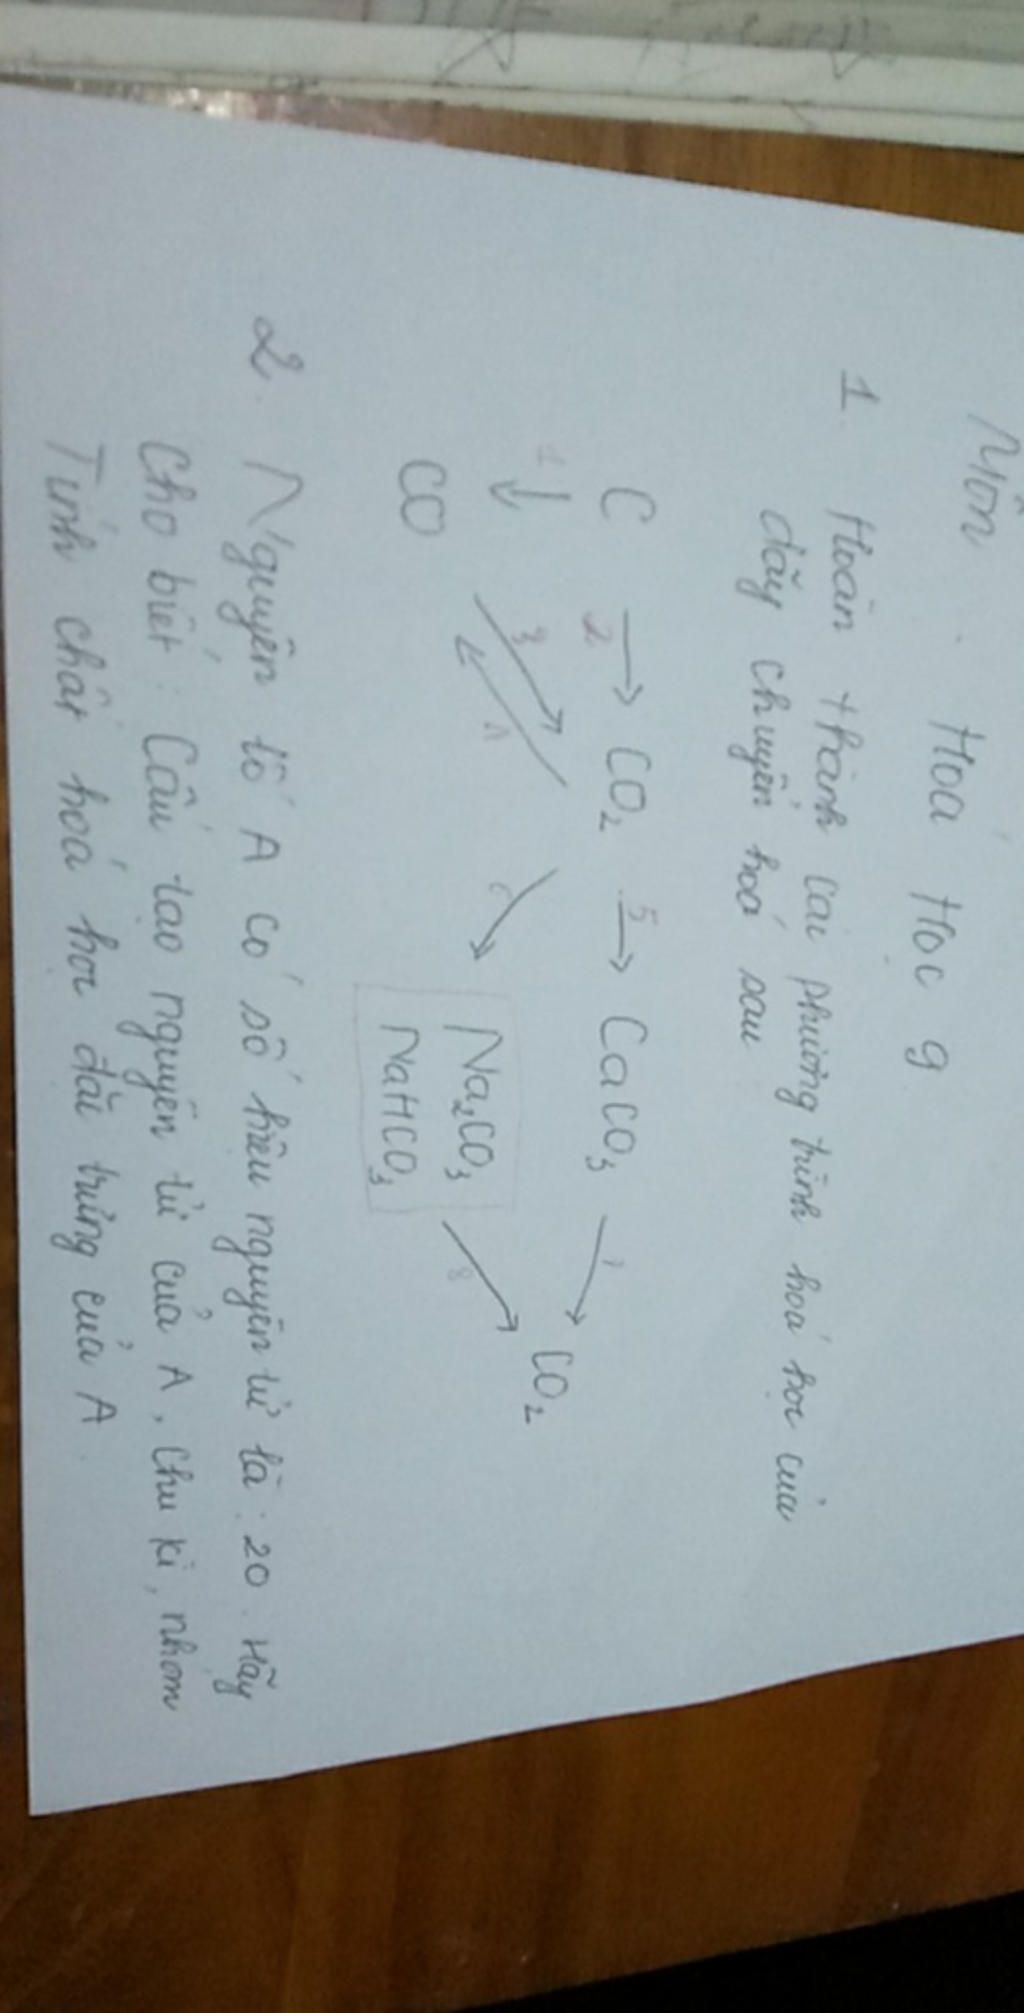 Môn : Hoá Học 9
1. Hoàn thành các phương trình hoá học của
dãy chuyển hoá sau
C → CO₂ → CaCO₃ → CO₂
2 5
1 3
CO Na₂CO₃
NaHCO₃
8
2. Nguyên tố A có số hiệu nguyên tử là : 20 . Hãy
Cho biết : Cấu tạo nguyên tử của A , chu kì , nhóm
Tính chất hoá học đặc trưng của A .